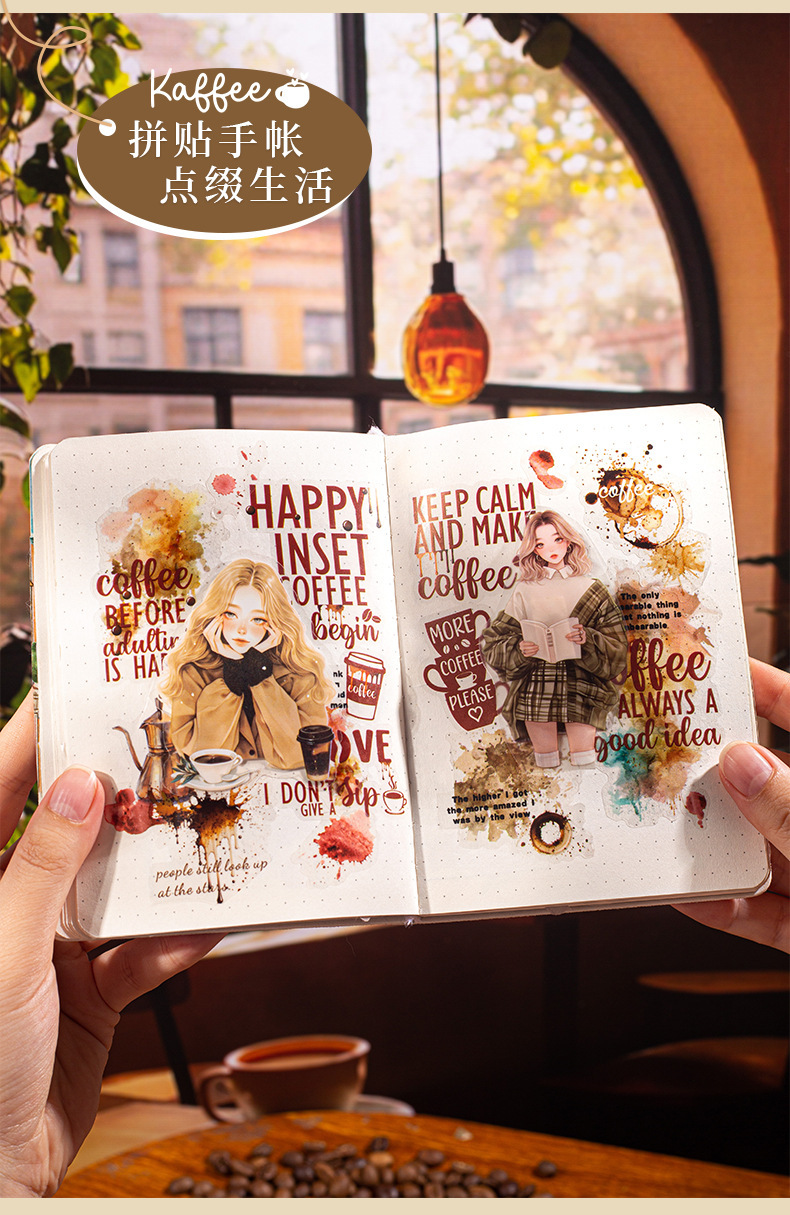 Kaffee
拼贴手帐
点缀生活
HAPPY
INSET
COFFEE
begin
coffee
BEFORE
adultin
IS HA
coffee
OVE
I DON'T Sip
GIVE A
people still look up
at the stars
KEEP CALM
AND MAKE
coffee
MORE
COFFEE
PLEASE
coffee
The only
arable thing
et nothing is
nbearable.
offee
ALWAYS A
good idea
The higher I got
the more amazed I
was by the view